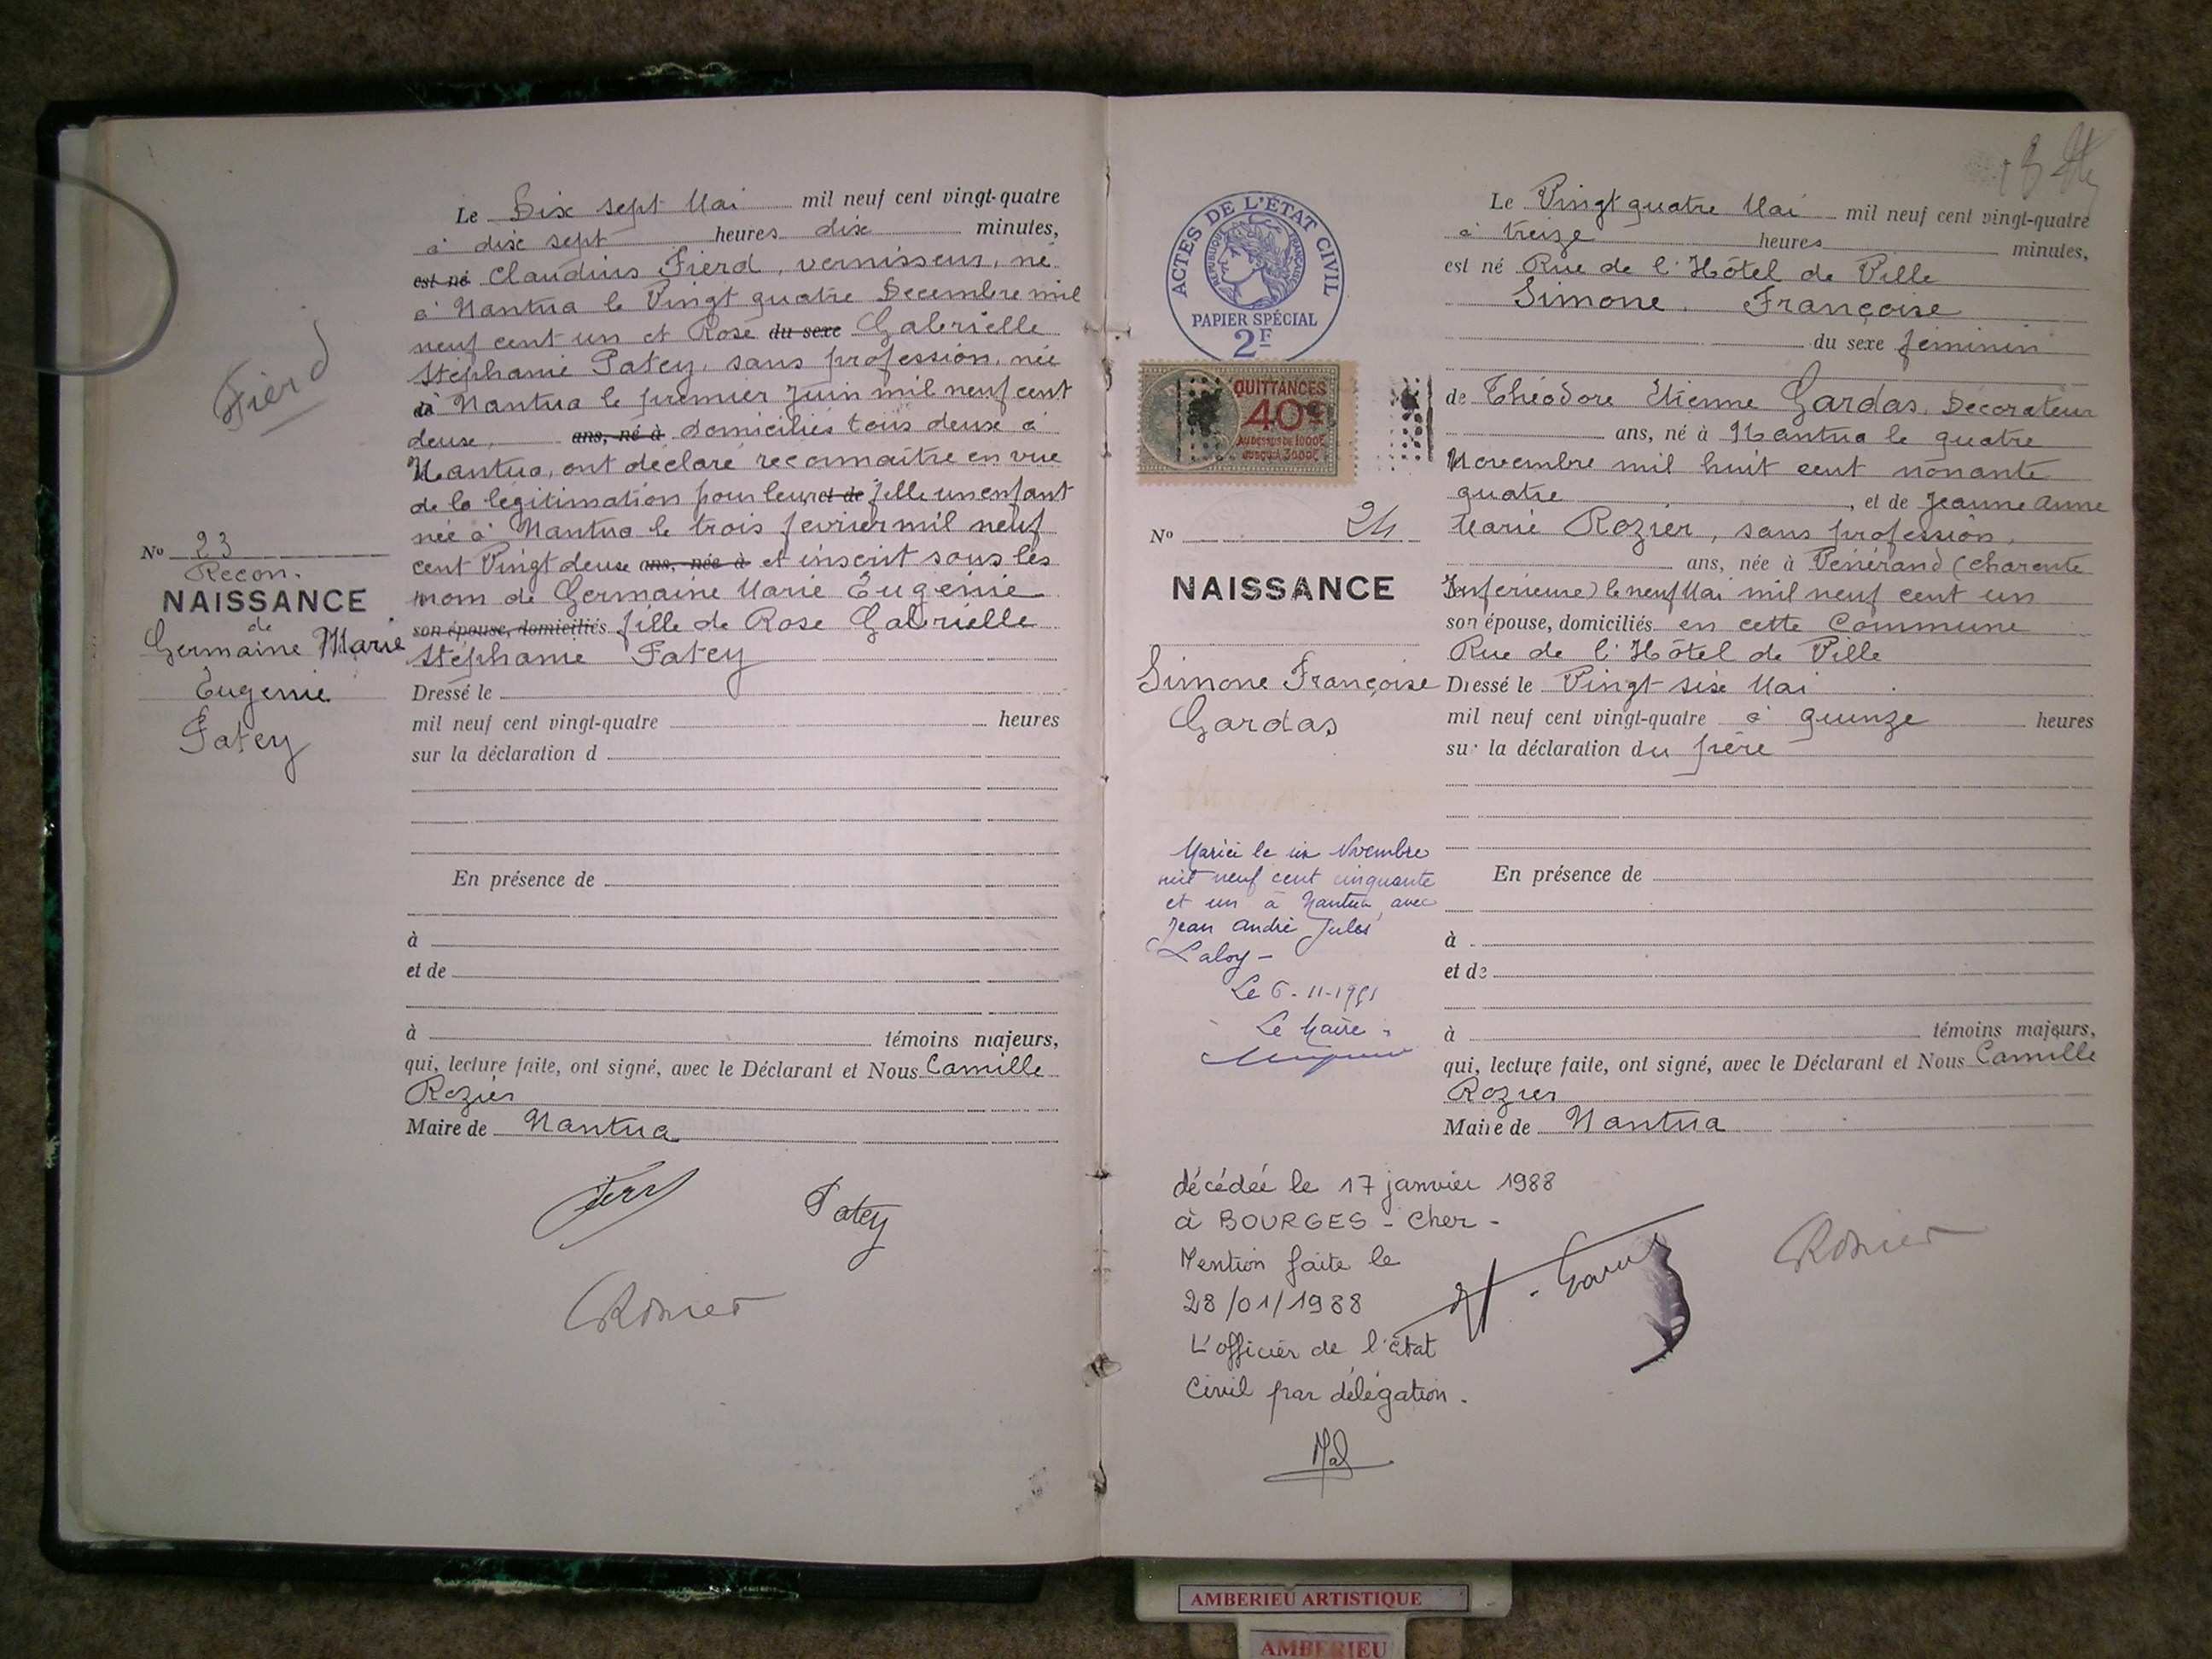 Fierd
N° 23
Recon.
NAISSANCE
de
Germaine Marie
Eugenie
Patey
Le Dix sept Mai mil neuf cent vingt-quatre
à dix sept heures dix minutes,
est né Claudius Fierd, vernisseur, né
à Nantua le Vingt quatre Decembre mil
neuf cent un et Rose du sexe Gabrielle
Stéphanie Patey, sans profession, née
à Nantua le premier Juin mil neuf cent
deux, ans, né à domiciliés tous deux à
Nantua, ont déclaré reconnaitre en vue
de la légitimation pour leur et de fille un enfant
née à Nantua le trois fevrier mil neuf
cent Vingt deux ans, née à et inscrit sous les
nom de Germaine Marie Eugénie
son épouse, domiciliés fille de Rose Gabrielle
Stéphanie Patey
Dressé le
mil neuf cent vingt-quatre heures
sur la déclaration d
En présence de
à
et de
à témoins majeurs,
qui, lecture faite, ont signé, avec le Déclarant et Nous Camille
Rozier
Maire de Nantua
Patey
CRozier
ACTES DE L'ÉTAT CIVIL
RÉPUBLIQUE FRANÇAISE
PAPIER SPÉCIAL
2F
QUITTANCES
40c
AU DESSUS DE 1000F
JUSQU'À 3000F
N° 24
NAISSANCE
Simone Françoise
Gardas
Mariée le six Novembre
mil neuf cent cinquante
et un à Nantua avec
Jean André Jules
Laloy -
Le 6-11-1951
Le Maire
Le Vingt quatre Mai mil neuf cent vingt-quatre
à treize heures minutes,
est né Rue de l'Hôtel de Ville
Simone, Françoise
du sexe féminin
de Théodore Etienne Gardas, Décorateur
ans, né à Nantua le quatre
Novembre mil huit cent nonante
quatre, et de Jeanne Anne
Marie Rozier, sans profession,
ans, née à Vénérand (Charente
Inférieure) le neuf Mai mil neuf cent un
son épouse, domiciliés en cette Commune
Rue de l'Hôtel de Ville
Dressé le Vingt six Mai
mil neuf cent vingt-quatre à quinze heures
sur la déclaration du père
En présence de
à
et de
à témoins majeurs,
qui, lecture faite, ont signé, avec le Déclarant et Nous Camille
Rozier
Maire de Nantua
décédée le 17 janvier 1988
à BOURGES - Cher -
Mention faite le
28/01/1988
L'officier de l'état
Civil par délégation.
CRozier
AMBERIEU ARTISTIQUE
AMBERIEU